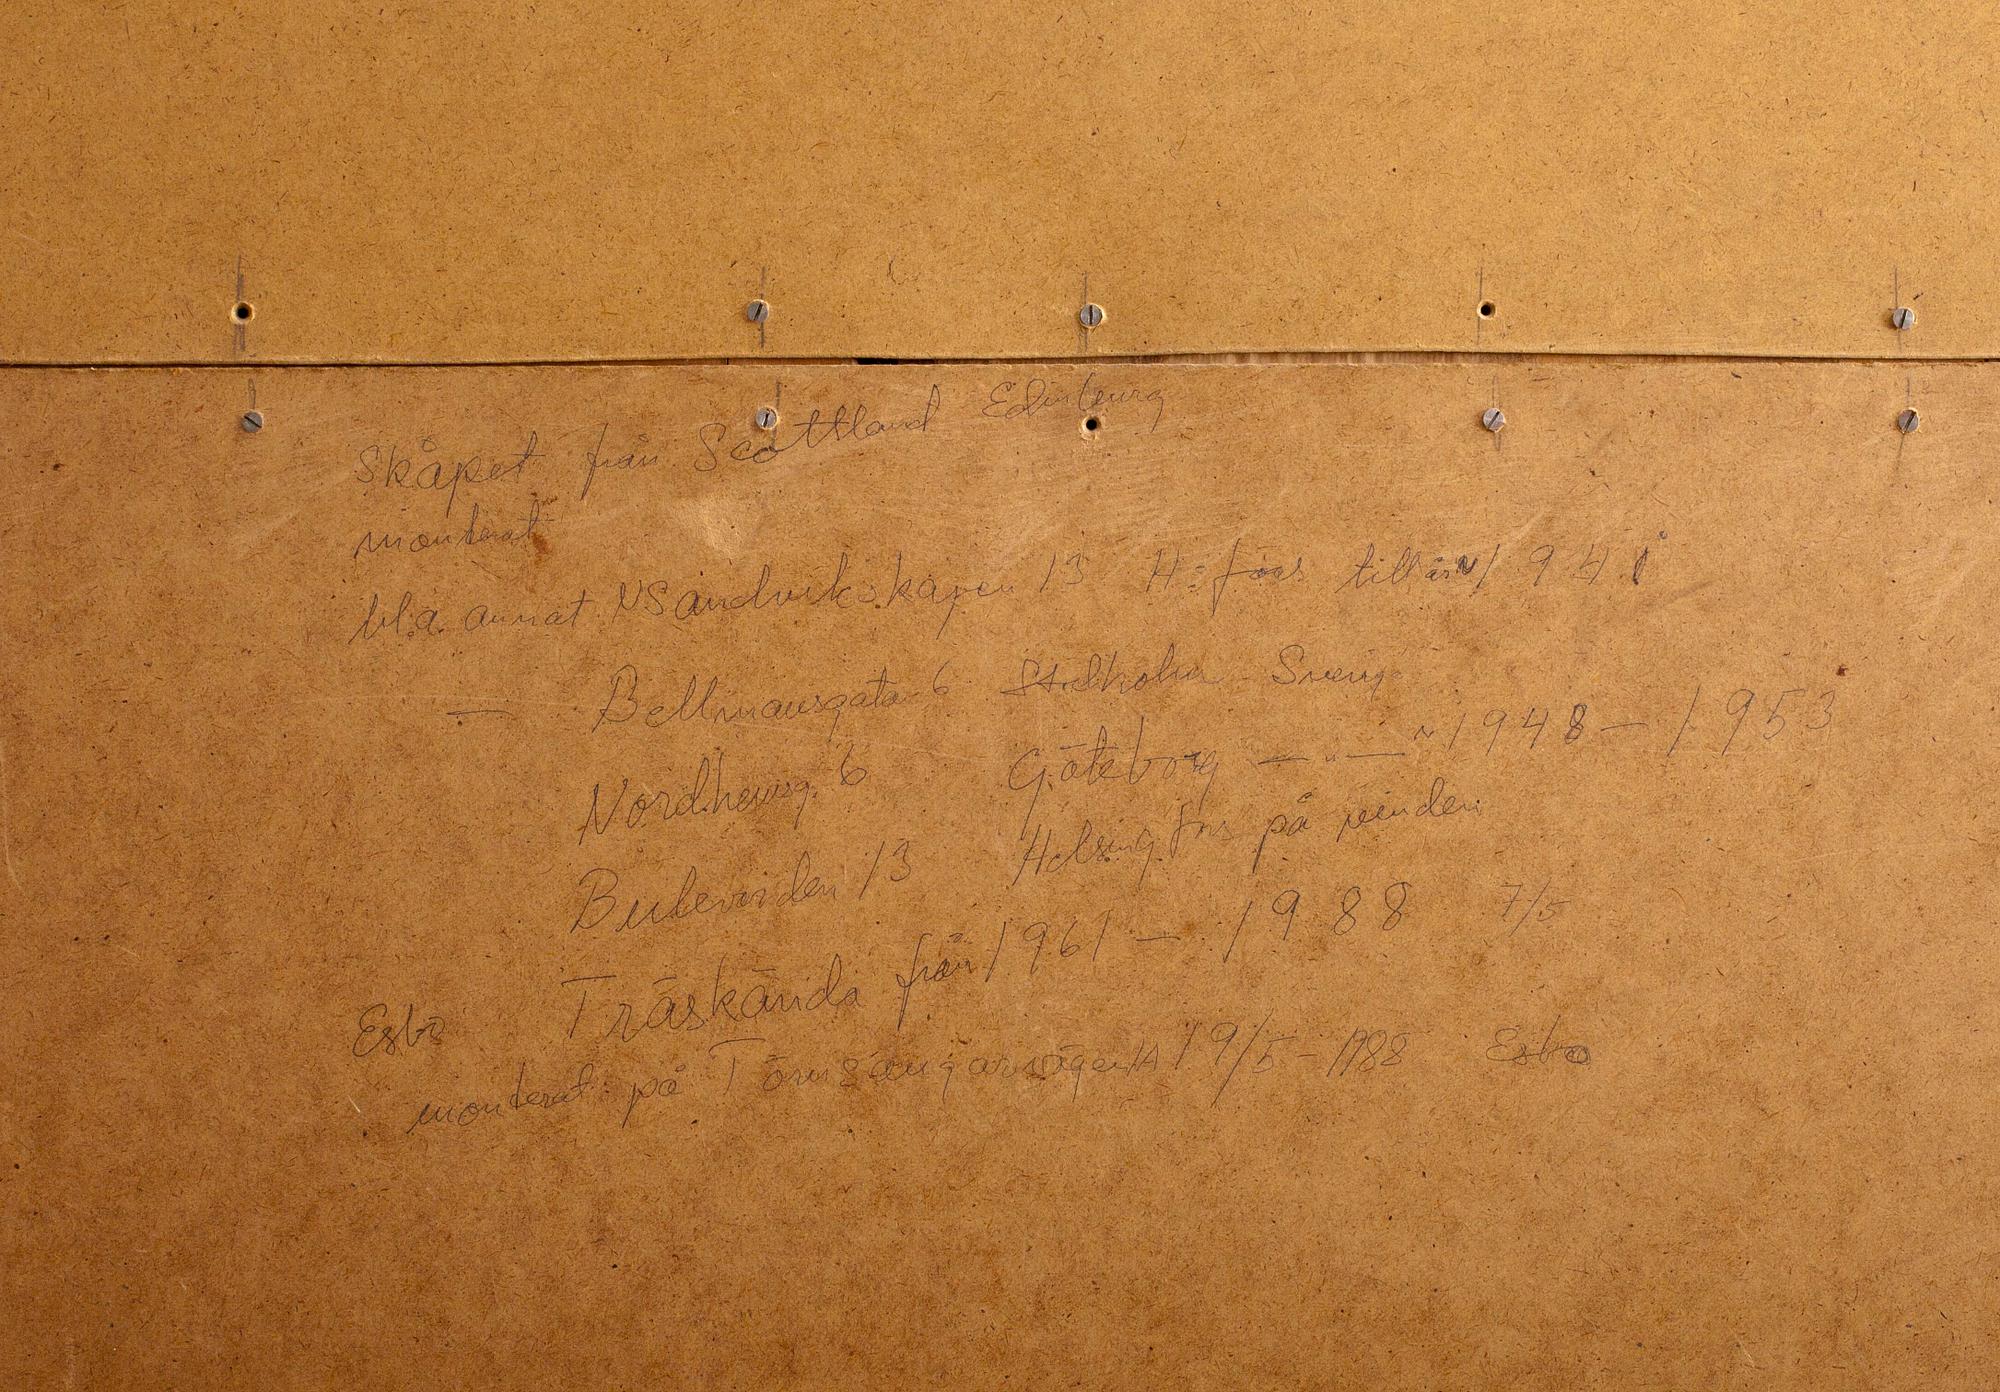 Skåpet från Scottland Edinburg
monterat
bl.a. annat NSandvikskapen 13 H:fors till år 1941
— Bellmansgata 6 Stockholm Sverig
Nordhemsg. 6 Göteborg — " — ~ 1948 — 1953
Bulevarden 13 Helsingfors på vinden
Esbo Träskända från 1961 — 1988 7/5
monterat på Törnsångarvägen 1A 19/5 - 1988 Esbo